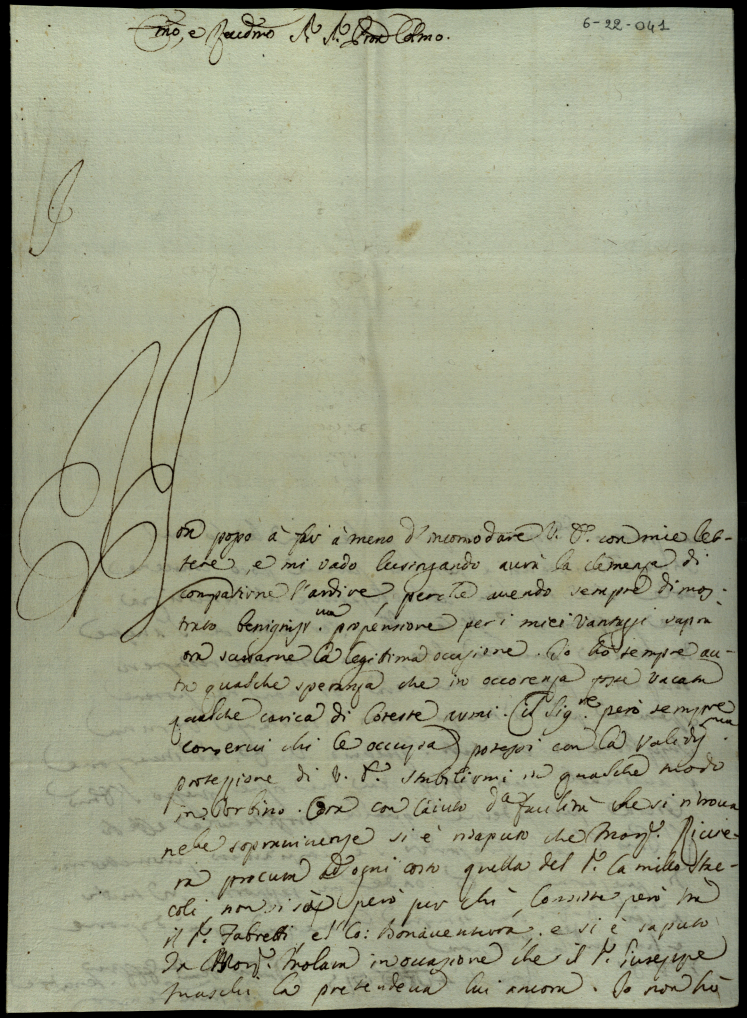 6-22-041
Ill.mo, e Rev.dmo Sr. Sr. Pron Colmo.
Non posso à far à meno d'incomodare V. S. con mie let-
tere, e mi vado lusingando aurà la clemenza di
compatirne l'ardire, perche avendo sempre dimos-
trato benigniss.ma propensione per i miei vantaggi saprà
ora scusarne la legitima occasione. Io hò sempre au-
to qualche speranza che in occorenza fosse vacata
qualche carica di coteste armi (il Sig.re però sempre
conservi chi le occupa) potessi con la validiss.ma
protezzione di V. S. stabilirmi in qualche modo
in Urbino. Ora con l'aiuto facilità che si ritrova
nelle sopravivenze si è risaputo che Mons.r Rivie-
ra procura ad ogni costo quella del Sr. Camillo Stac-
coli non si sà però per chi, consiste però trà
il Sr. Fabretti e'l Co: Bonaventura, e si è saputo
da Mons.r in occasione che il Sr. Giuseppe
la pretendeva lui ancora. Io non hò